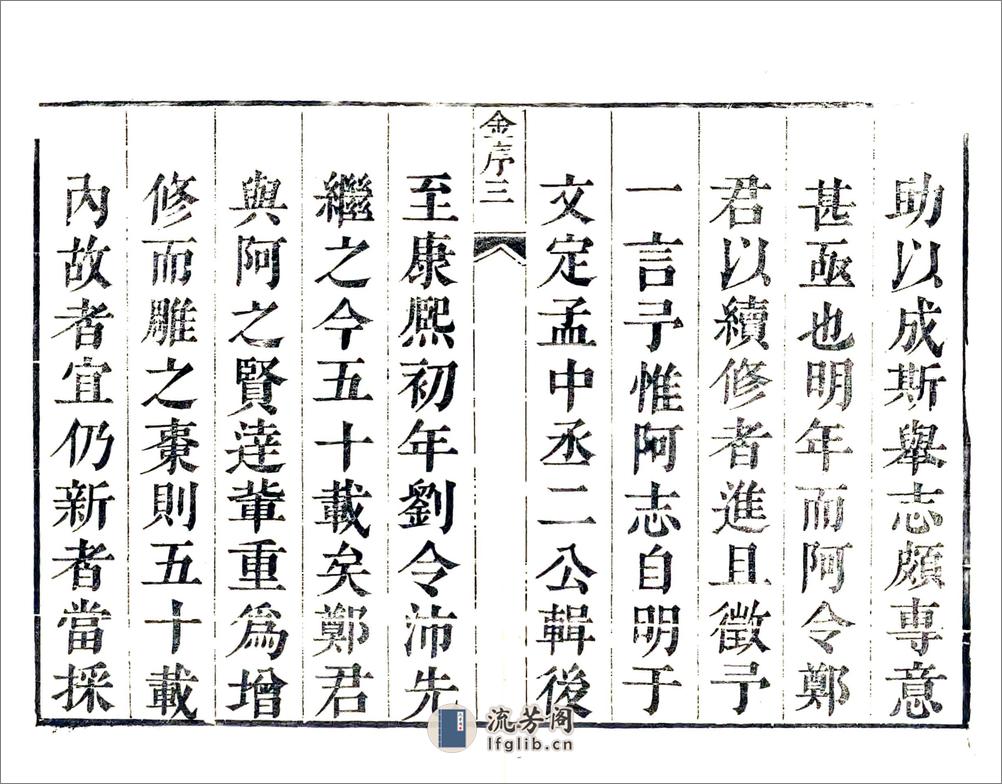 助以成斯舉志頗專意
甚亟也明年而阿令鄭
君以續修者進且徵予
一言予惟阿志自明于
文定孟中丞二公輯後
金序三
至康熙初年劉令沛先
繼之今五十載矣鄭君
與阿之賢達輩重爲增
修而雕之棗則五十載
內故者宜仍新者當採
流芳阁
lfglib.cn